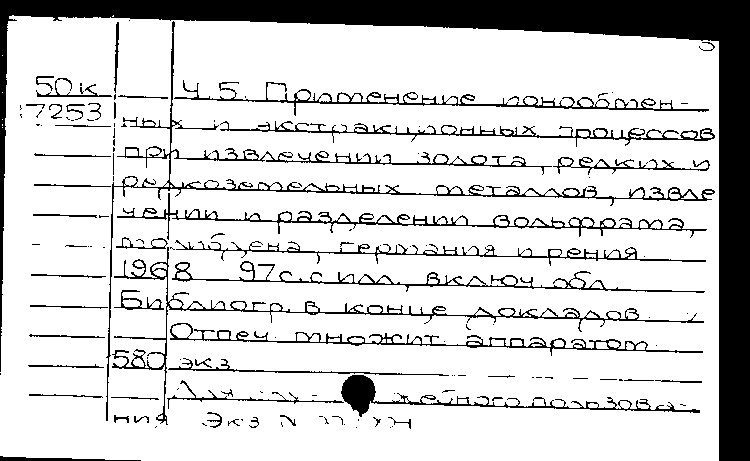 50к Ч. 5. Применение ионообмен-
17253 ных и экстракционных процессов
при извлечении золота, редких и
редкоземельных металлов, извле
чении и разделении вольфрама,
молибдена, германия и рения.
1968 97с. с илл., включ. обл.
Библиогр. в конце докладов.
Отпеч. множит. аппаратом
580 экз.
Для жебного пользова-
ния Экз N